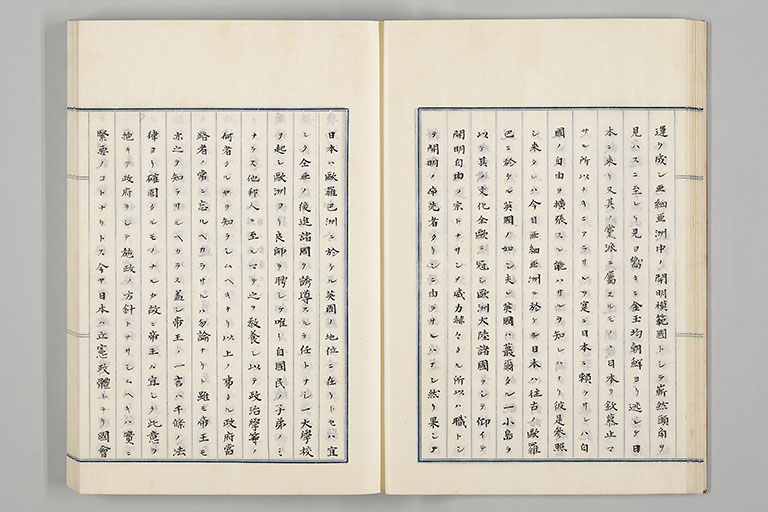 運ヲ成シ亜細亜洲中ノ開明模範國トシテ嶄然頭角ヲ
見ハスニ至レリ見ヨ嚮キニ金玉均朝鮮ヨリ逃レテ日
本ニ来リ又其ノ黨派ニ屬スルモノヽ日本ヲ欽慕止マ
サル所以ナキニアラサルヲ寔ニ日本ニ頼ラサレハ自
國ノ自由ヲ擴張スル能ハサルヲ知レハナリ彼是参照
シ来タレハ今日亜細亜洲ニ於ケル日本ハ往古ノ歐羅
巴ニ於ケル英國ノ如シ夫レ英國ハ蕞爾タル一小島ヲ
以テ其ノ文化全歐ニ冠シ歐洲大陸諸國ヲシテ仰イテ
開明自由ノ宗トナサシメ威力赫々タル所以ハ職トシ
テ開明ノ率先者タリシニ由ラサレハアラシ然リ果シテ
日本ハ歐羅巴洲ニ於ケル英國ノ地位ニ在リトセハ宜
シク全亜ノ後進諸國ヲ誘導スルヲ任トナシ一大學校
ヲ起シ歐洲ヨリ良師ヲ聘シテ唯リ自國民ノ子弟ノミ
ナラス他邦人ニ至ルマテ之ヲ教養シ以テ政治學等ノ
何者タルヤヲ知ラシムヘキナリ以上ノ事タル政府當
路者ノ常ニ忘ルヘカラサルハ勿論ナリト雖モ帝王モ
亦之ヲ知ラサルヘカラス蓋シ帝王ノ一言ハ千條ノ法
律ヨリ確固タルモノナルカ故ニ帝王ハ宜シク此意ヲ
抱キテ政府ヲシテ施政ノ方針トナサシムヘキハ實ニ
緊要ノコトナリトス今ヤ日本ハ立憲政體トナリ國會